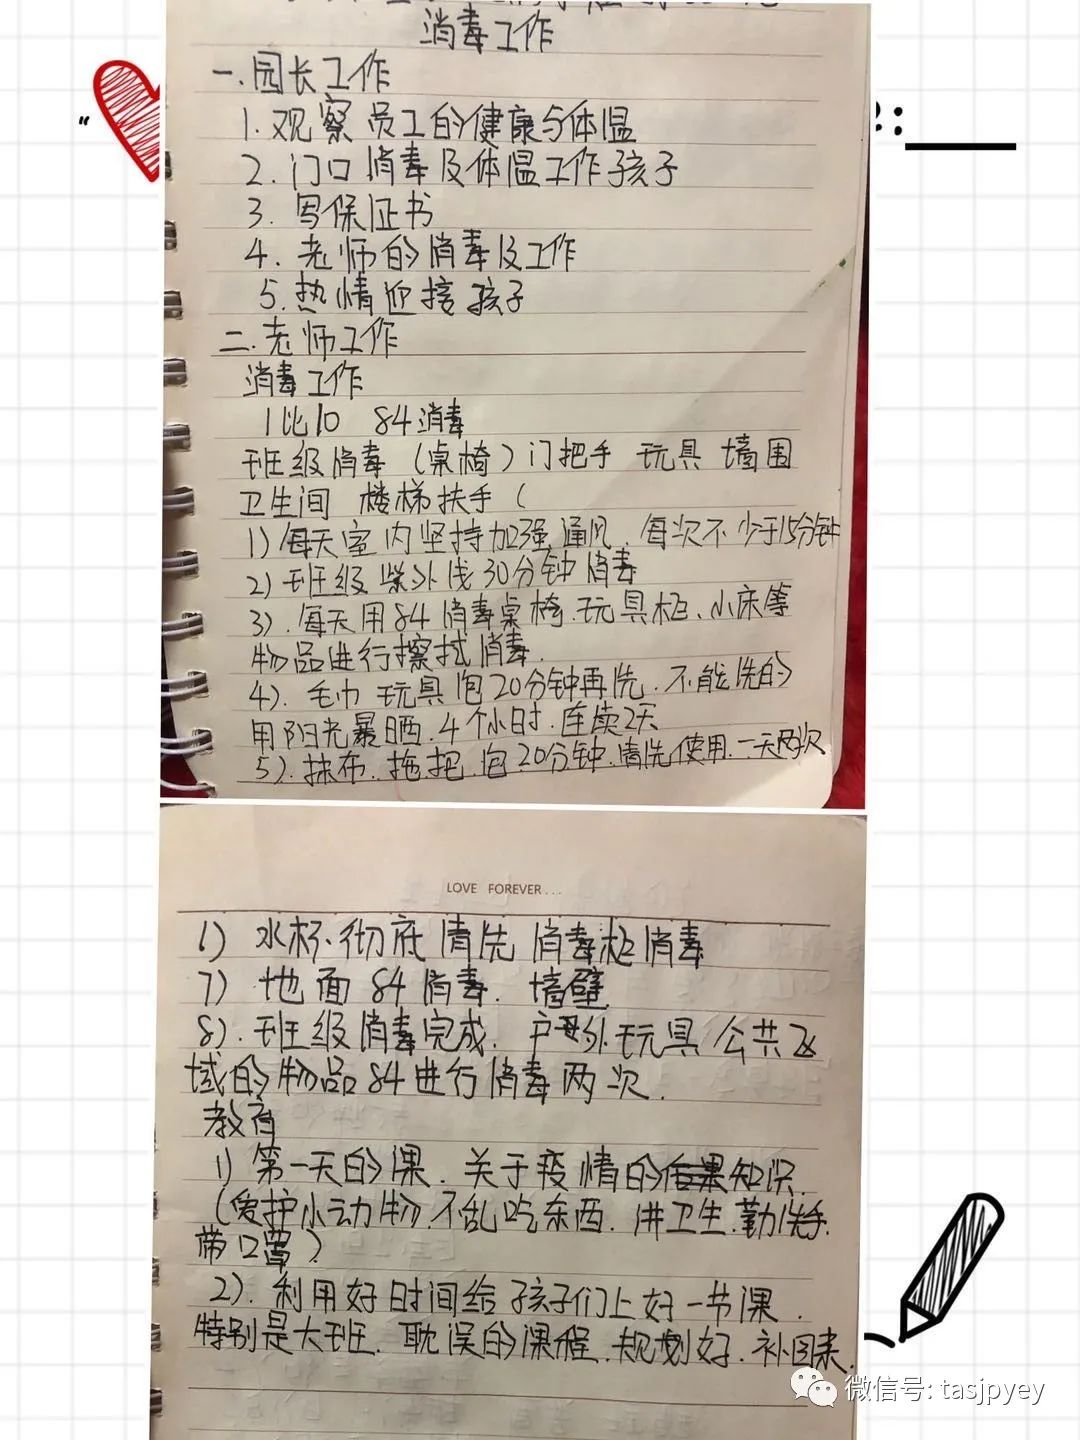 消毒工作
一.园长工作
1.观察员工的健康与体温
2.门口消毒及体温工作孩子
3.写保证书
4.老师的消毒及工作
5.热情迎接孩子
二.老师工作
消毒工作
1比10 84消毒
班级消毒(桌椅)门把手 玩具 墙围
卫生间 楼梯扶手(
1)每天室内坚持加强通风.每次不少于15分钟
2)班级紫外线30分钟消毒
3).每天用84消毒桌椅.玩具柜、小床等
物品进行擦拭消毒.
4).毛巾 玩具泡20分钟再洗.不能洗的
用阳光暴晒.4个小时.连续2天
5).抹布.拖把.泡20分钟.清洗使用.一天两次
LOVE FOREVER...
6)水杯.彻底清洗 消毒柜消毒
7)地面84消毒.墙壁
8).班级消毒完成.户外玩具公共区
域的物品84进行消毒两次.
教育
1)第一天的课.关于疫情的知识.
(爱护小动物.不乱吃东西.讲卫生.勤洗手.
带口罩)
2).利用好时间给孩子们上好一节课.
特别是大班.耽误的课程.规划好.补回来.
微信号: tasjpyey